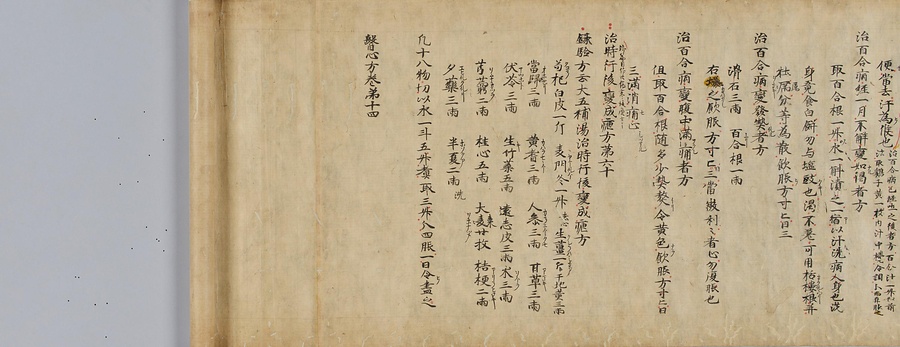 便常去汗為候也
治百合病經一月不解變如渴者方
取百合根一升水一斛漬之一宿以汁洗病人身也洗
身竟食白餅勿与塩豉也渴不差可用栝樓根并
牡厲分等為散飲服方寸匕日三
治百合病變發熱者方
滑石三兩 百合根一兩
右 之飲服方寸匕日三當微利々者止勿復服也
治百合病變腹中滿痛者方
但取百合根随多少熬令黄色飲服方寸匕日
三滿消痛止
治時行後變成瘧方第六十
錄驗方云大五補湯治時行後變成瘧方
苟杞白皮一斤 麦門冬一升 生薑一斤 干地黄三兩
當歸三兩 黄耆三兩 人参三兩 甘草三兩
伏苓三兩 生竹葉五兩 遠志皮三兩 术三兩
芎藭二兩 桂心五兩 大棗廿枚 桔梗二兩
夕藥三兩 半夏二兩洗
凡十八物切以水一斗五升煮取三升八四服一日令盡之
醫心方巻第十四